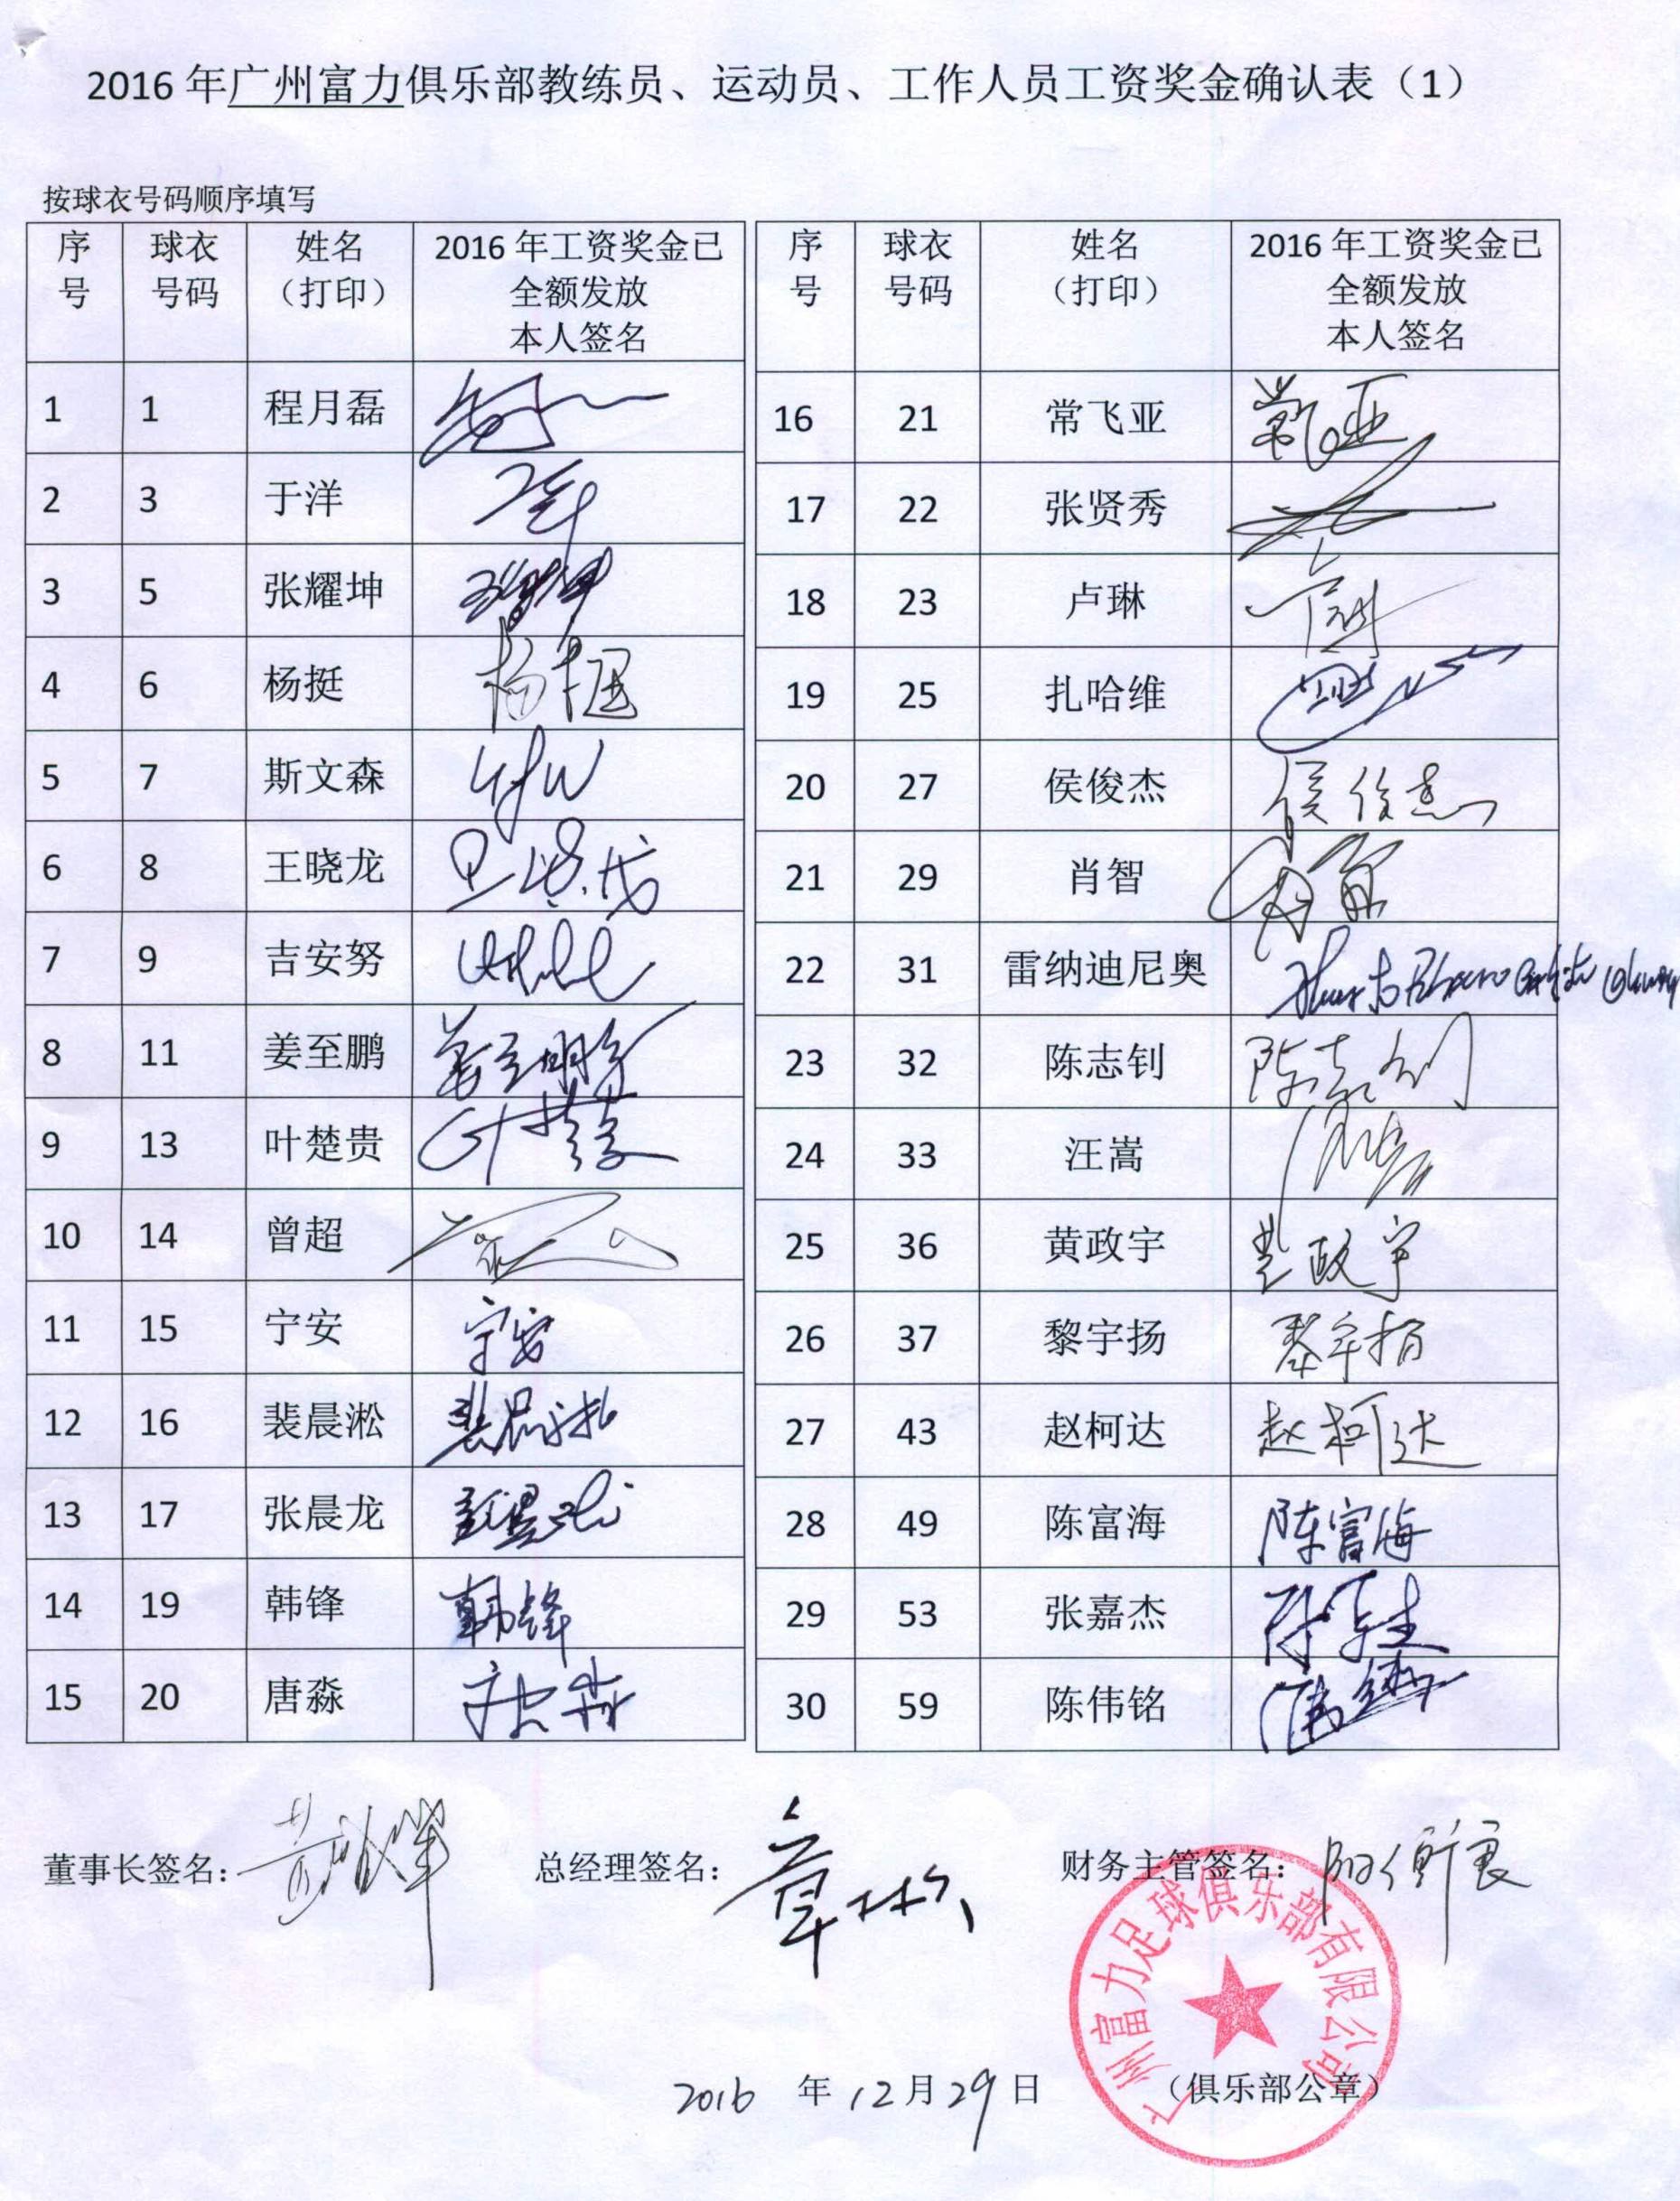 2016 年广州富力俱乐部教练员、运动员、工作人员工资奖金确认表（1）
按球衣号码顺序填写
序号 球衣号码 姓名（打印） 2016 年工资奖金已全额发放本人签名
1 1 程月磊
2 3 于洋
3 5 张耀坤
4 6 杨挺 杨挺
5 7 斯文森
6 8 王晓龙
7 9 吉安努
8 11 姜至鹏 姜至鹏
9 13 叶楚贵 叶楚贵
10 14 曾超
11 15 宁安 宁安
12 16 裴晨淞 裴晨淞
13 17 张晨龙
14 19 韩锋 韩锋
15 20 唐淼 唐淼
序号 球衣号码 姓名（打印） 2016 年工资奖金已全额发放本人签名
16 21 常飞亚 常飞亚
17 22 张贤秀
18 23 卢琳
19 25 扎哈维
20 27 侯俊杰 侯俊杰
21 29 肖智
22 31 雷纳迪尼奥
23 32 陈志钊 陈志钊
24 33 汪嵩
25 36 黄政宇 黄政宇
26 37 黎宇扬 黎宇扬
27 43 赵柯达 赵柯达
28 49 陈富海 陈富海
29 53 张嘉杰
30 59 陈伟铭
董事长签名： 总经理签名： 章彬 财务主管签名：
广州富力足球俱乐部有限公司
2016 年 12 月 29 日 （俱乐部公章）